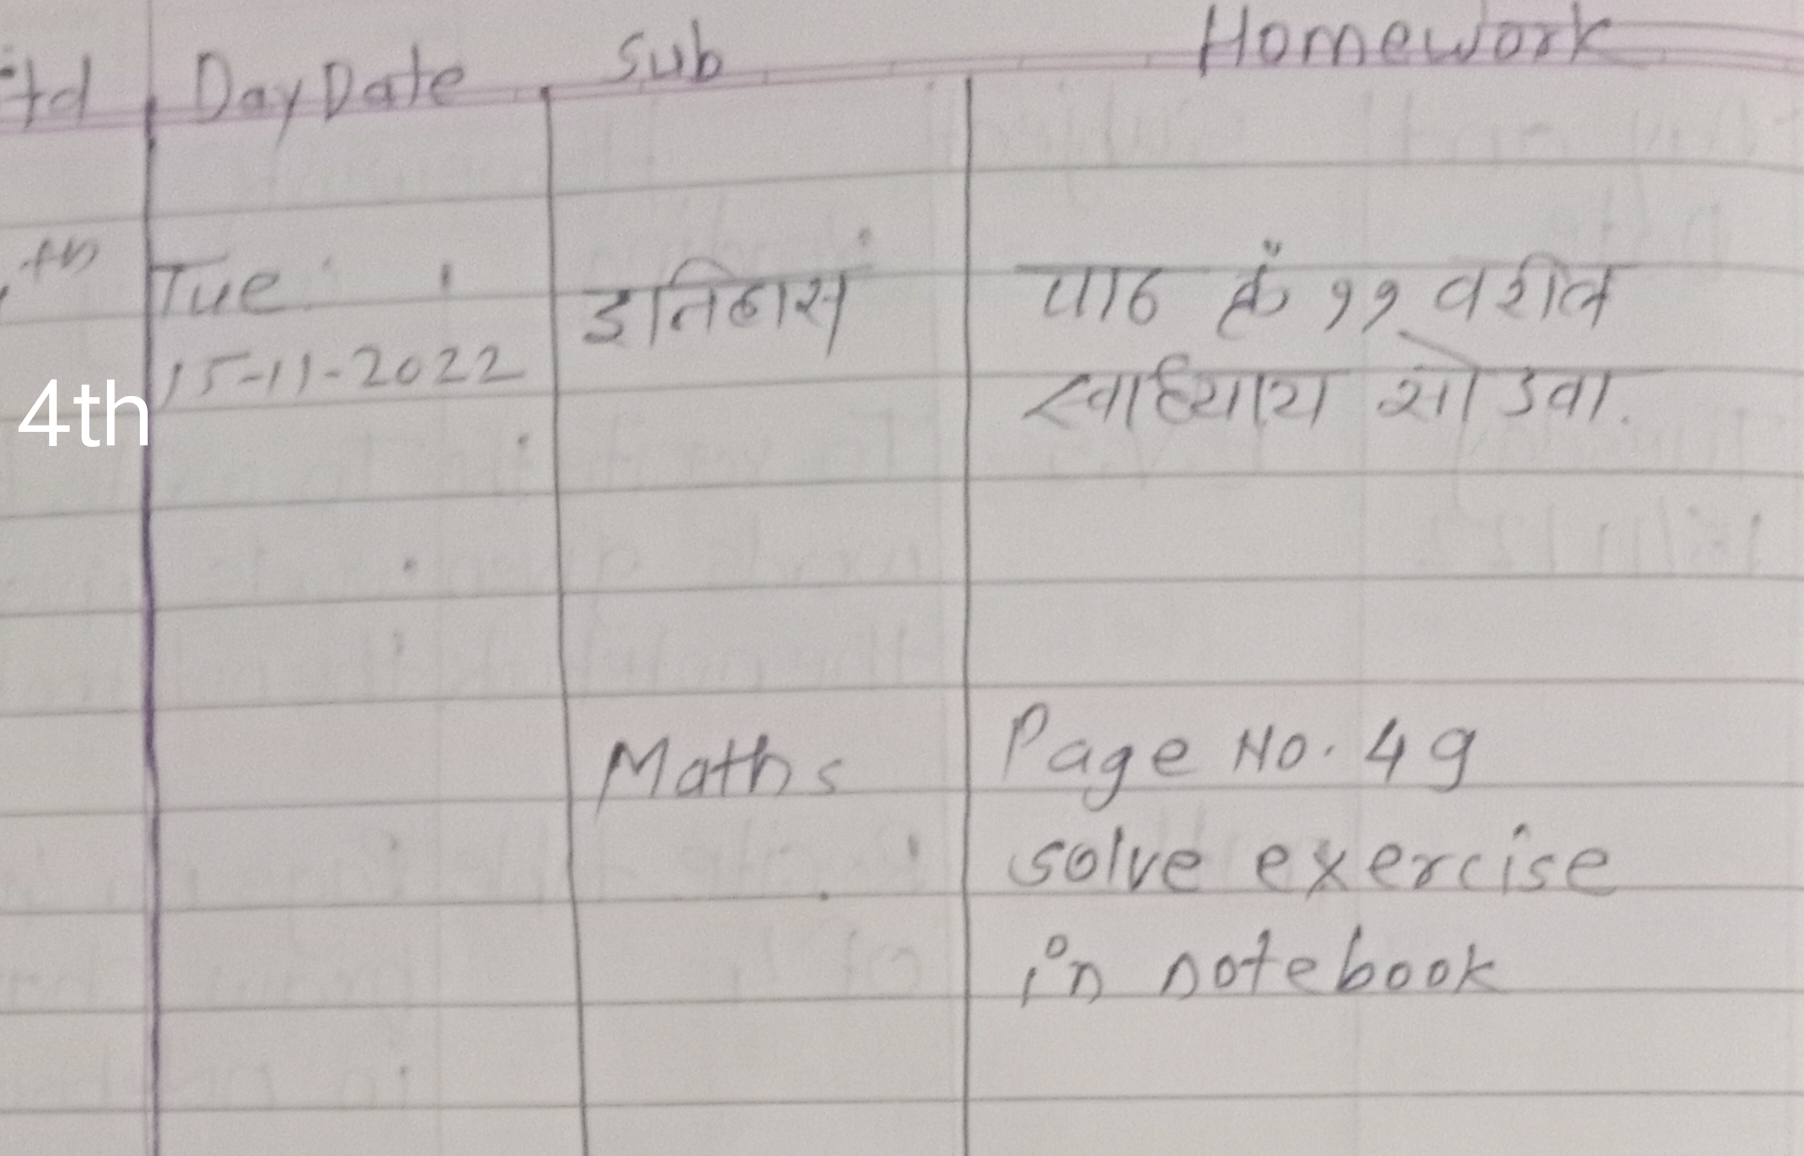 Std Day Date Sub Homework
th
Tue इतिहास पाठ क्रं ११ वरील
15-11-2022 स्वाध्याय सोडवा.
4th
Maths Page No. 49
solve exercise
in notebook